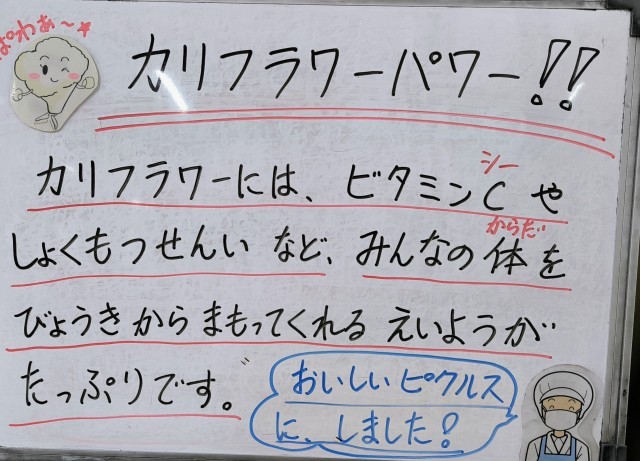 ぱわぁ~☆
カリフラワーパワー!!
カリフラワーには、ビタミンCや
シー
しょくもつせんいなど、みんなの体を
からだ
びょうきからまもってくれるえいようが
たっぷりです。
おいしいピクルス
に、しました!